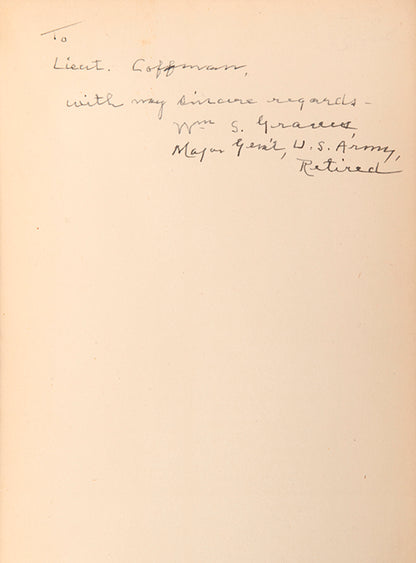 To
Lieut. Coffman,
with my sincere regards -
Wm S. Graves,
Major Gen'l, U.S. Army,
Retired